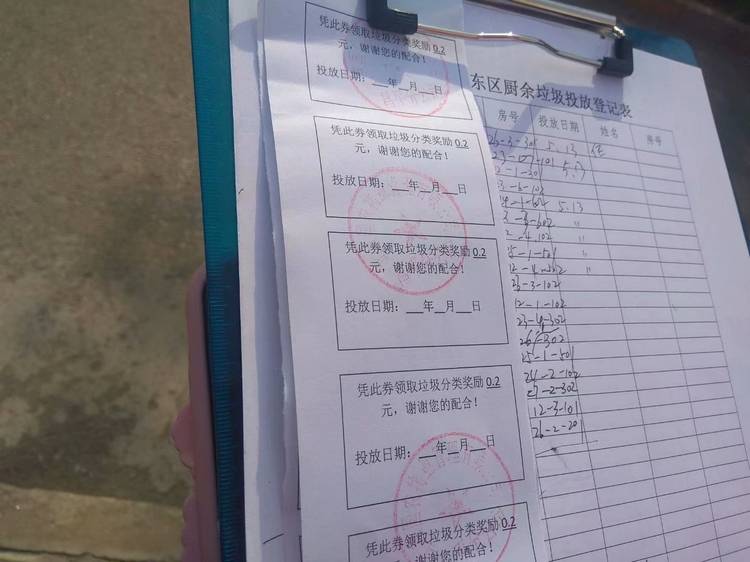 凭此券领取垃圾分类奖励 0.2
元，谢谢您的配合！
投放日期：___年__月__日
凭此券领取垃圾分类奖励 0.2
元，谢谢您的配合！
投放日期：___年__月__日
凭此券领取垃圾分类奖励 0.2
元，谢谢您的配合！
投放日期：___年__月__日
凭此券领取垃圾分类奖励 0.2
元，谢谢您的配合！
投放日期：___年__月__日
凭此券领取垃圾分类奖励 0.2
谢谢您的配合！
东区厨余垃圾投放登记表
房号 投放日期 姓名 序号
26-3-305 5.13
23-107-101 5.13
2-1-301
3-6-102
14-1-604 5.13
3-3-602 "
2-4-102 "
15-1-501
12-4-302 "
23-3-102
12-1-102
23-4-302
26-1-302
25-1-501
24-2-102
27-2-302
12-3-101
26-2-201